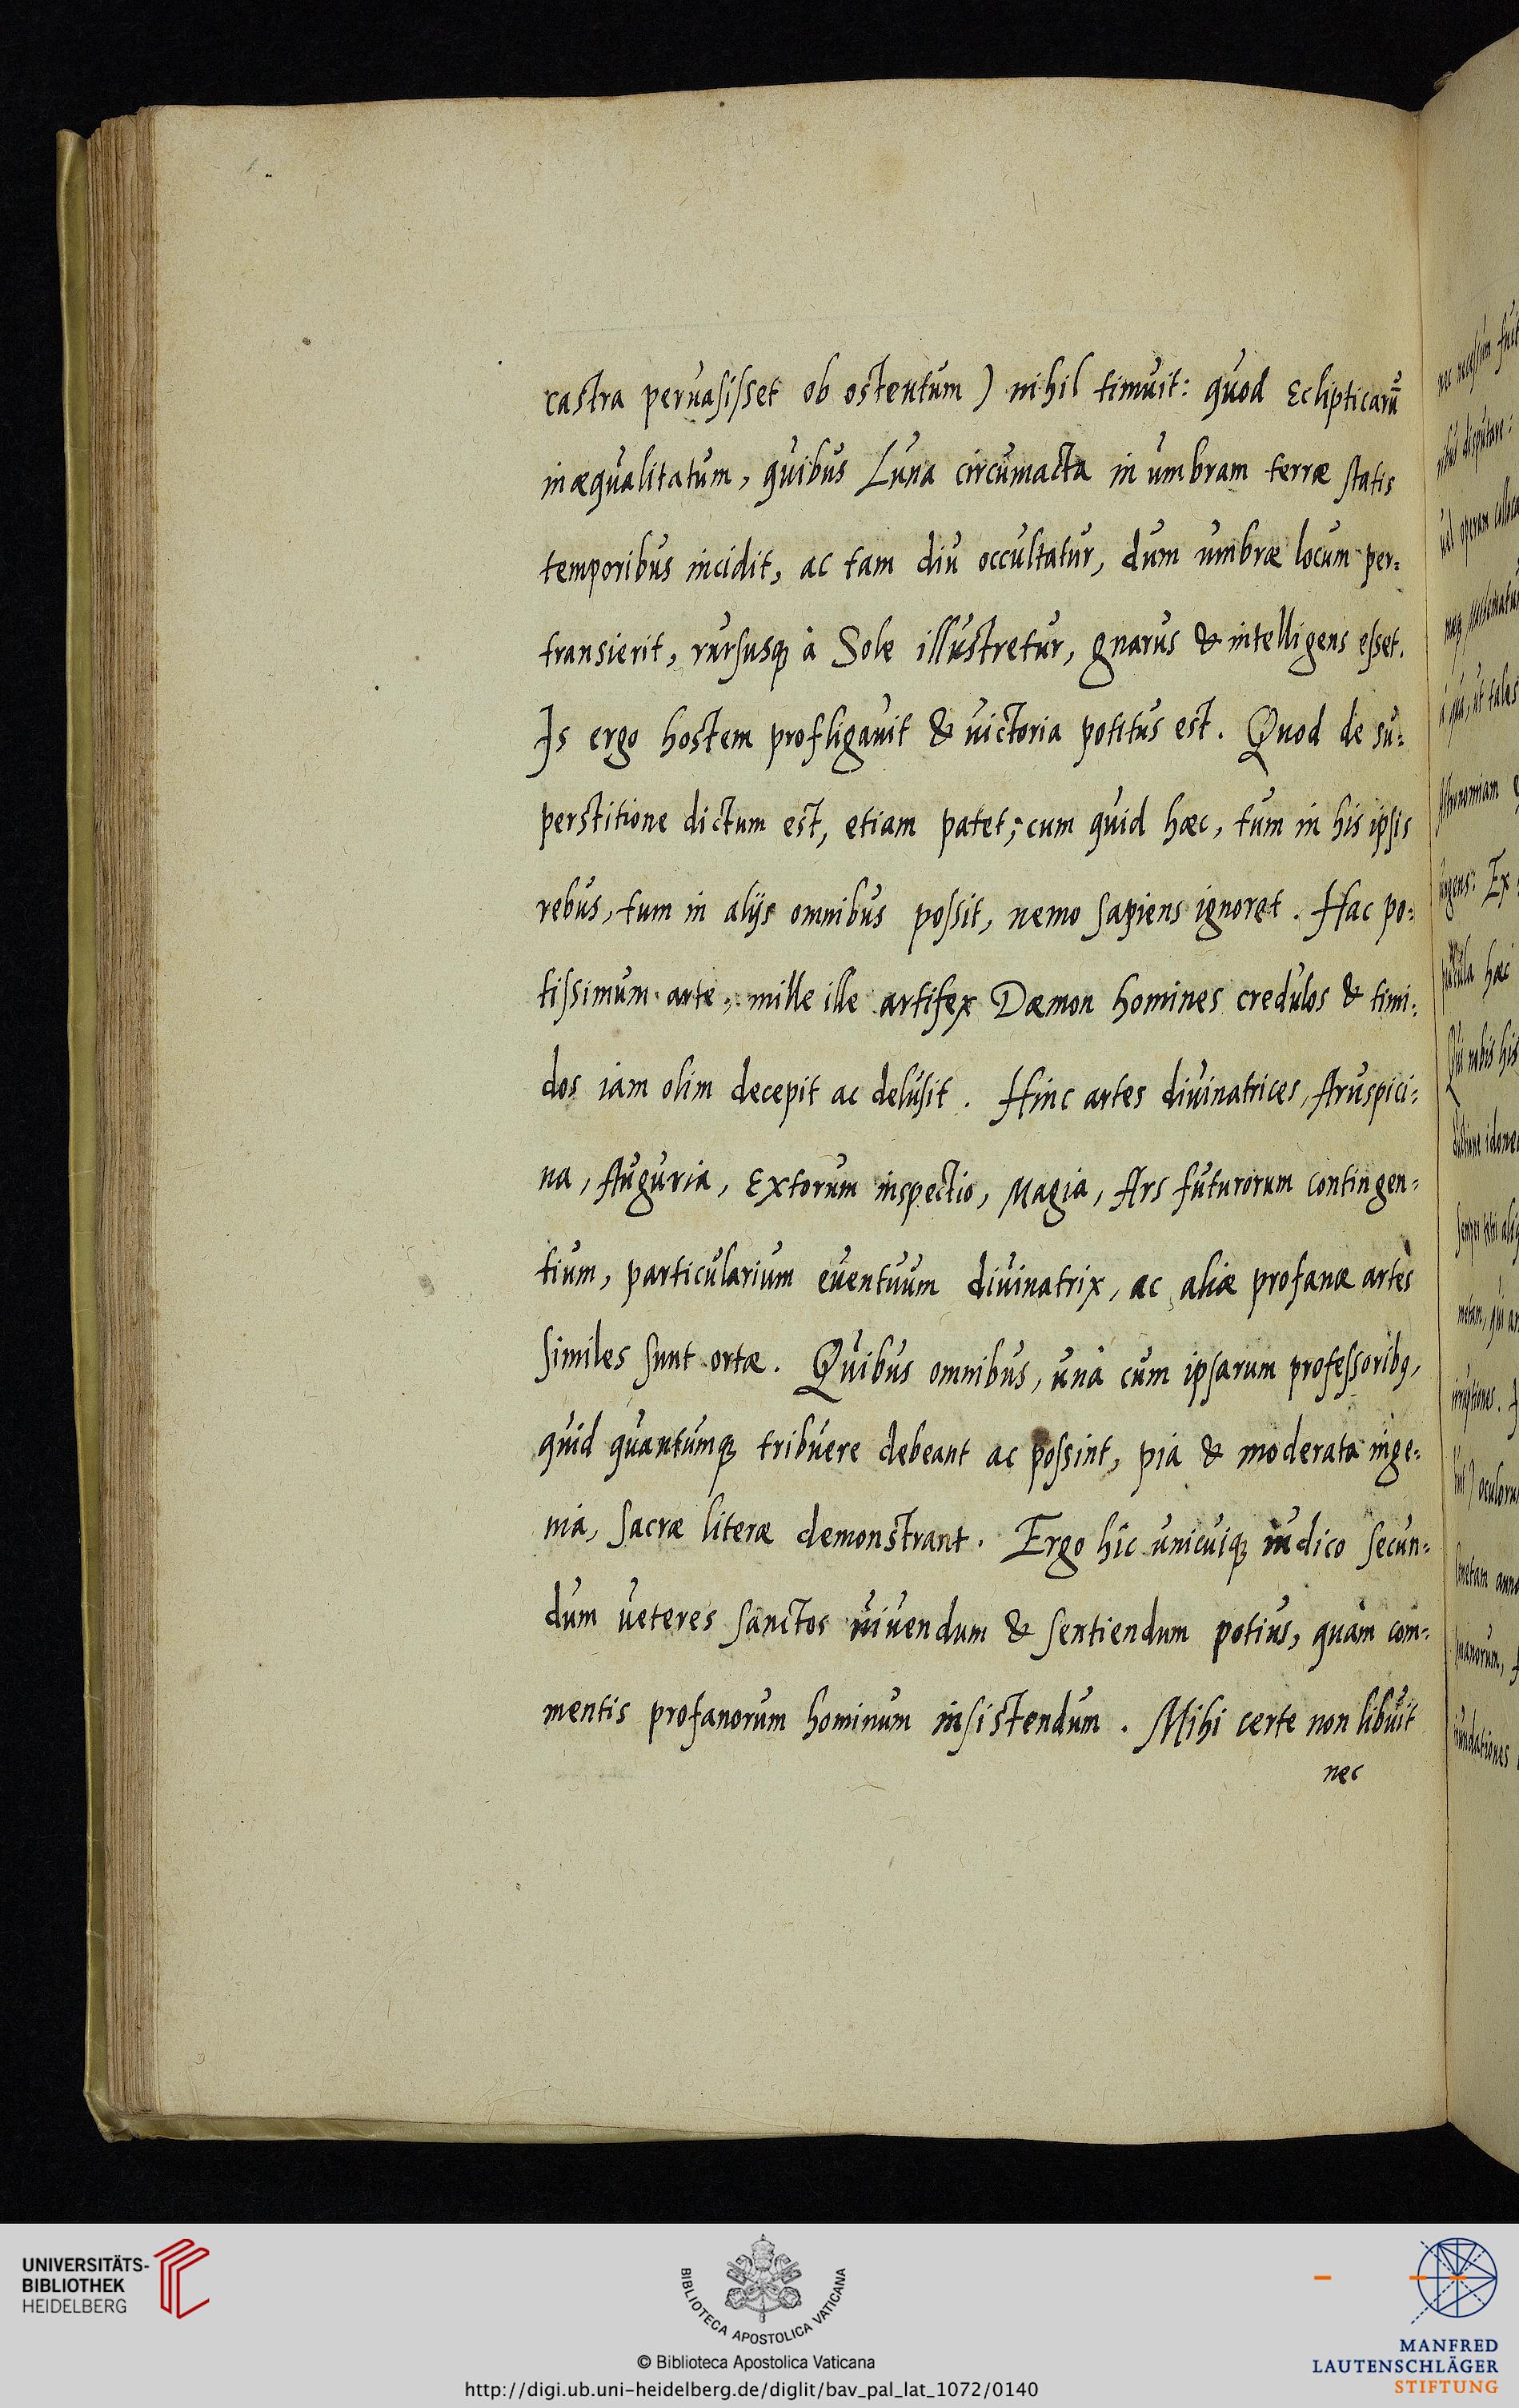 castra peruasisset ob ostentum) nihil timuit: quod Eclipticarū
inæqualitatum, quibus Luna circumacta in umbram terræ statis
temporibus incidit, ac tam diu occultatur, dum umbræ locum per=
transierit, rursusq; à Sole illustretur, gnarus & intelligens esset.
Is ergo hostem profligauit & uictoria potitus est. Quod de su=
perstitione dictum est, etiam patet; cum quid hæc, tum in his ipsis
rebus, tum in alijs omnibus possit, nemo sapiens ignoret. Hac po=
tissimum arte, mille ille artifex Dæmon homines credulos & timi=
dos iam olim decepit ac delusit. Hinc artes diuinatrices, Aruspici=
na, Auguria, Extorum inspectio, Magia, Ars futurorum contingen=
tium, particularium euentuum diuinatrix, ac aliæ profanæ artes
similes sunt ortæ. Quibus omnibus, unà cum ipsarum professoribq,
quid quantumq; tribuere debeant ac possint, pia & moderata inge=
nia, sacræ literæ demonstrant. Ergo hîc unicuiq; iudico secun=
dum ueteres sanctos uiuendum & sentiendum potius, quàm com=
mentis profanorum hominum insistendum. Mihi certe non libuit
nec
nec necessum fuit
disputare:
uel operam
à qua, ut tales
Astronomiam
Ex
hæc
Qui nobis his
semper
metam, qui
irruptiones.
oculorum
UNIVERSITÄTS-
BIBLIOTHEK
HEIDELBERG
BIBLIOTECA APOSTOLICA VATICANA
© Biblioteca Apostolica Vaticana
http://digi.ub.uni-heidelberg.de/diglit/bav_pal_lat_1072/0140
MANFRED
LAUTENSCHLÄGER
STIFTUNG